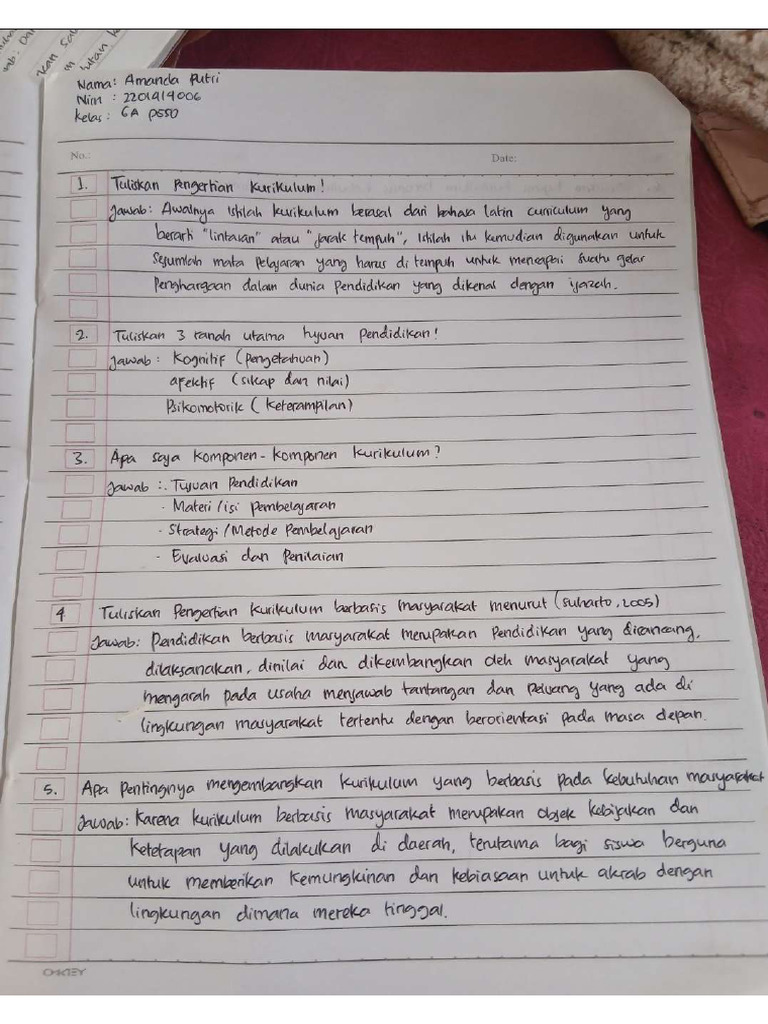 Nama: Amanda Putri
Nim : 2201414006
Kelas: 6A PSSD
No.:
Date:
1. Tuliskan Pengertian Kurikulum!
Jawab: Awalnya istilah kurikulum berasal dari bahasa latin curriculum yang
berarti "lintasan" atau "jarak tempuh", istilah itu kemudian digunakan untuk
sejumlah mata pelajaran yang harus di tempuh untuk mencapai suatu gelar
Penghargaan dalam dunia pendidikan yang dikenal dengan ijazah.
2. Tuliskan 3 ranah utama tujuan pendidikan!
Jawab : Kognitif (pengetahuan)
afektif (sikap dan nilai)
Psikomotorik (Keterampilan)
3. Apa saja Komponen-Komponen Kurikulum?
Jawab :. Tujuan Pendidikan
. Materi/isi pembelajaran
- Strategi/Metode Pembelajaran
- Evaluasi dan Penilaian
4 Tuliskan Pengertian Kurikulum berbasis masyarakat menurut (suharto, 2005)
Jawab: Pendidikan berbasis masyarakat merupakan Pendidikan yang dirancang,
dilaksanakan, dinilai dan dikembangkan oleh masyarakat yang
mengarah pada usaha menjawab tantangan dan peluang yang ada di
lingkungan masyarakat tertentu dengan berorientasi pada masa depan.
5. Apa pentingnya mengembangkan kurikulum yang berbasis pada kebutuhan masyarakat
Jawab: Karena kurikulum berbasis masyarakat merupakan objek kebijakan dan
ketetapan yang dilakukan di daerah, terutama bagi siswa berguna
untuk memberikan kemungkinan dan kebiasaan untuk akrab dengan
lingkungan dimana mereka tinggal.